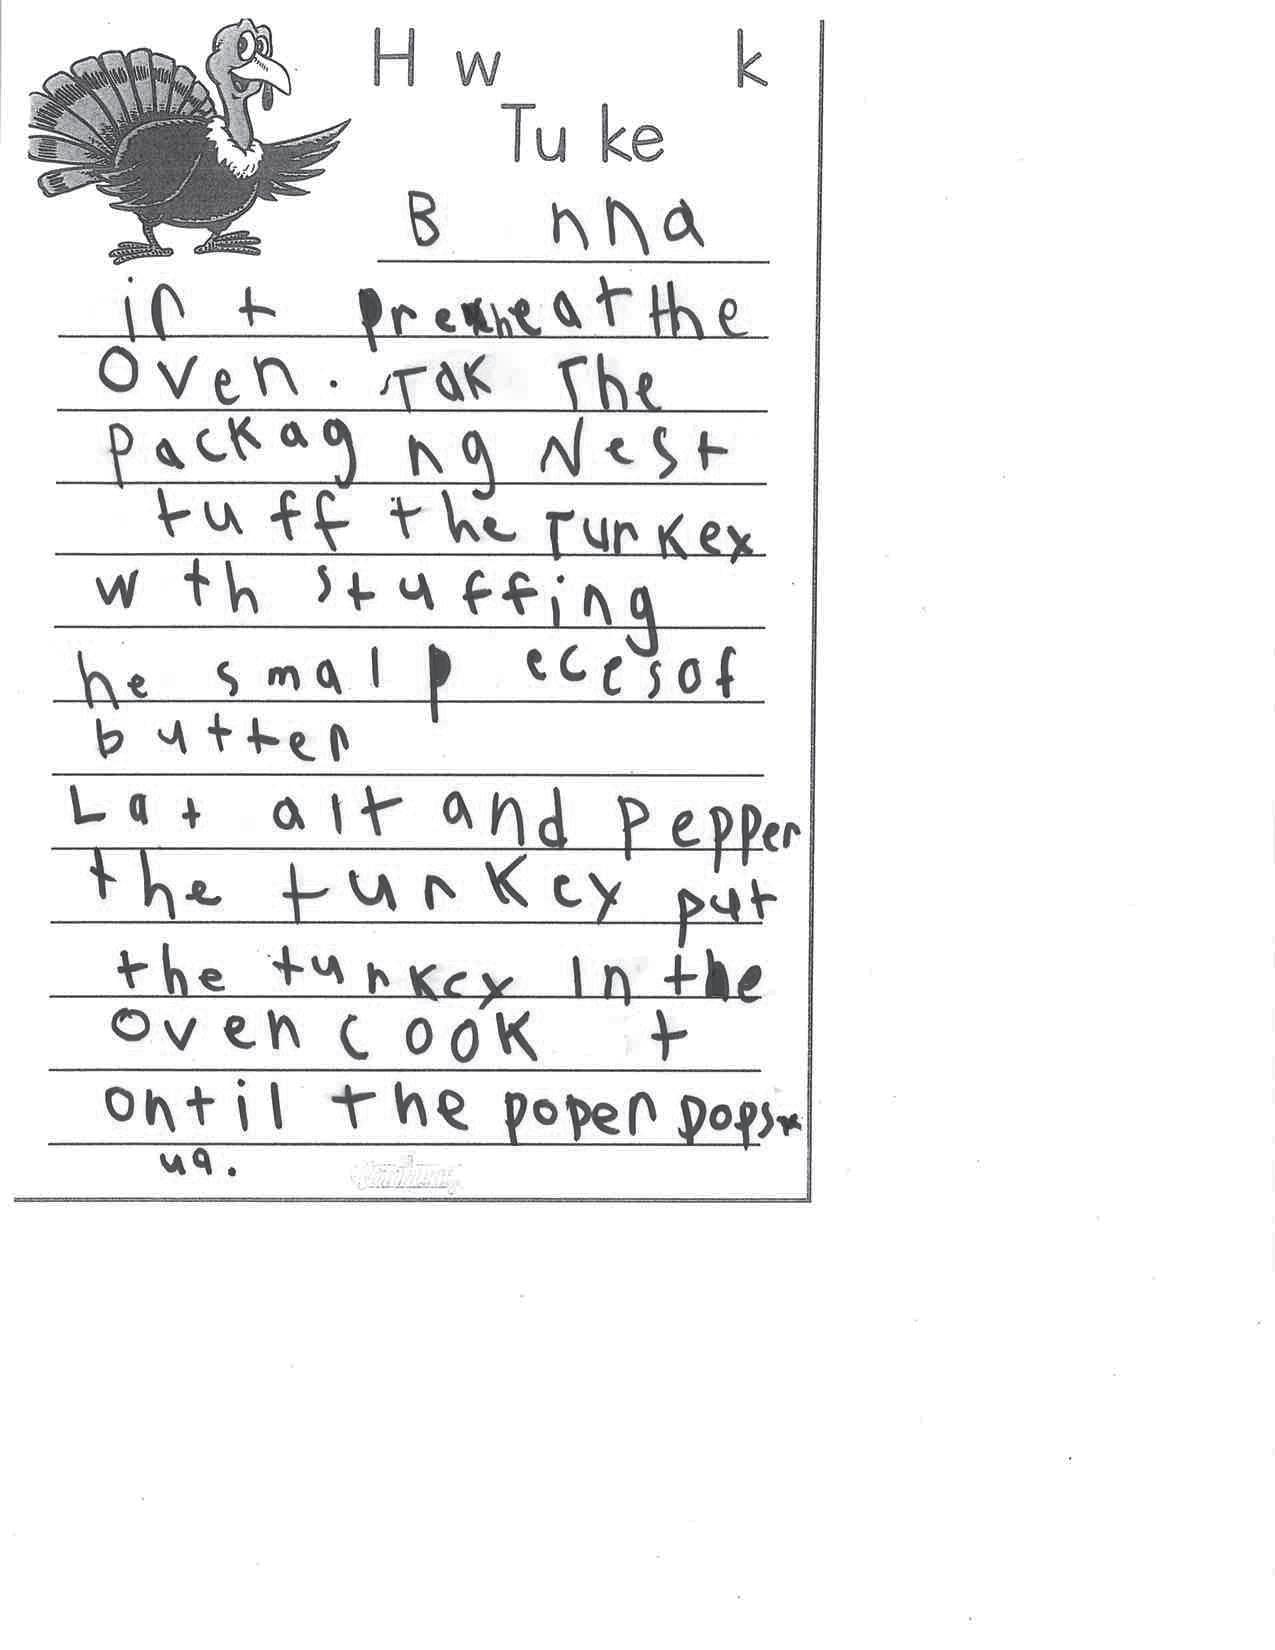 H w k
Tu ke
B nna
ir t preheat the
Oven. Tak The
packag ng Nest
tuff the Turkey
w th stuffing
he small p eces of
butter
Lat alt and Pepper
the turkey put
the turkey in the
oven cook t
ontil the poper pops
up.